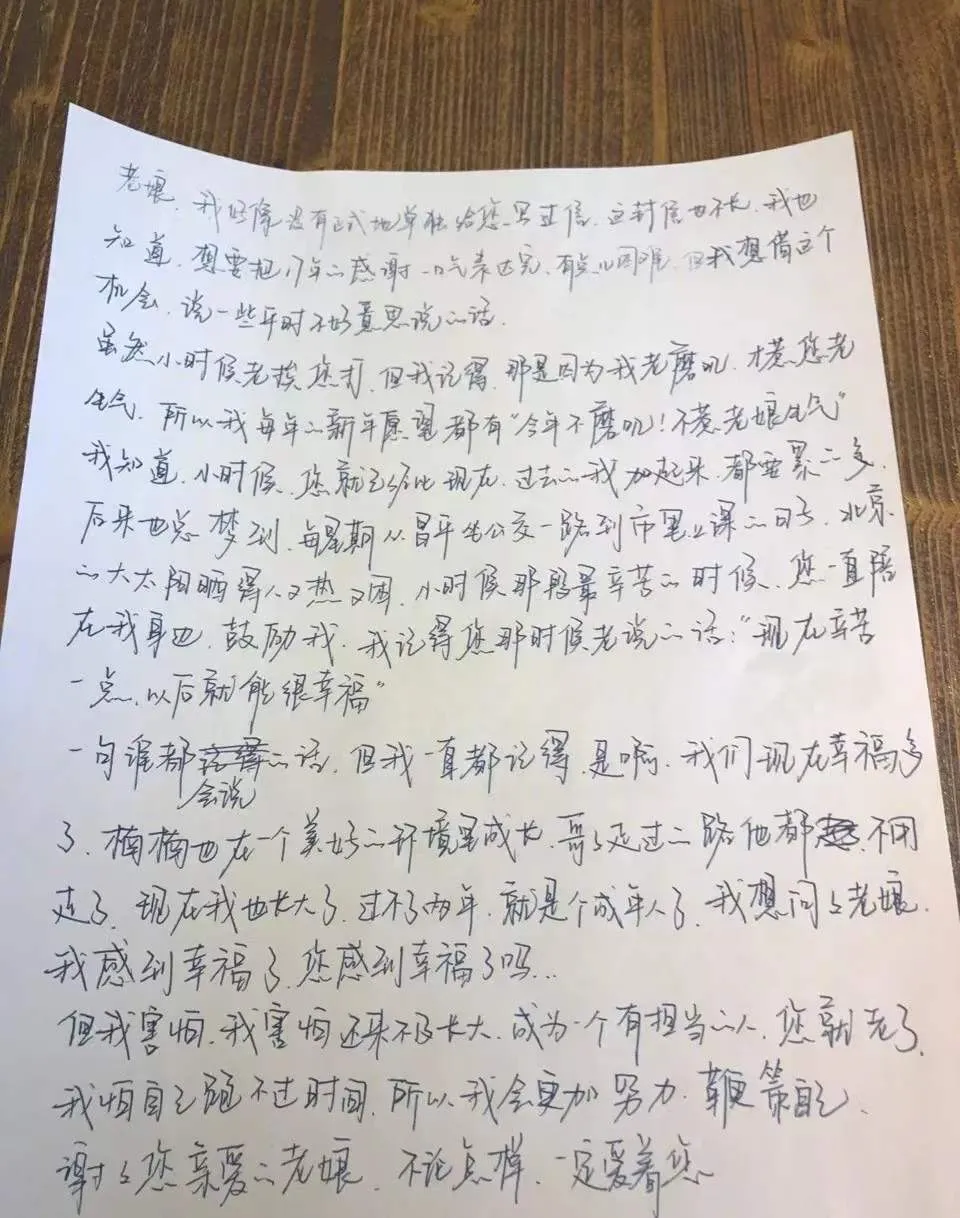 老娘、我好像没有正式地单独给您写过信、这封信也不长、我也
知道、想要把17年的感谢一口气表达完、有点儿困难、但我想借这个
机会、说一些平时不好意思说的话、
虽然小时候老挨您打、但我记得、那是因为我老磨叽、才惹您老
生气、所以我每年的新年愿望都有“今年不磨叽!不惹老娘生气”
我知道、小时候、您就已经比现在、过去的我加起来、都要累的多、
后来也总梦到、每星期从昌平坐公交一路到市里上课的日子、北京
的大太阳晒得人又热又困、小时候那段最辛苦的时候、您一直陪
在我身边、鼓励我、我记得您那时候老说的话:“现在辛苦
一点、以后就能很幸福”
一句谁都会说的话、但我一直都记得、是啊、我们现在幸福多
了、楠楠也在一个美好的环境里成长、哥哥走过的路他都不用
走了、现在我也长大了、过不了两年、就是个成年人了、我想问问老娘、
我感到幸福了、您感到幸福了吗...
但我害怕、我害怕还来不及长大、成为一个有担当的人、您就老了、
我怕自己跑不过时间、所以我会更加努力、鞭策自己、
谢谢您亲爱的老娘、不论怎样、一定爱着您